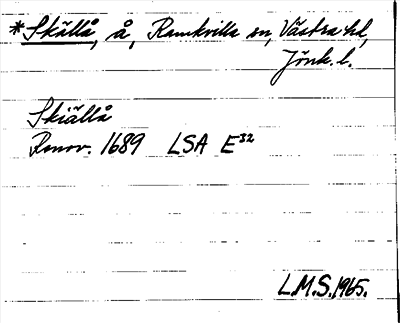 *Skällå, å, Ramkvilla sn, Västra hd,
Jönk. l.
Skiällå
Renov. 1689 LSA E³²
L.M.S. 1965.